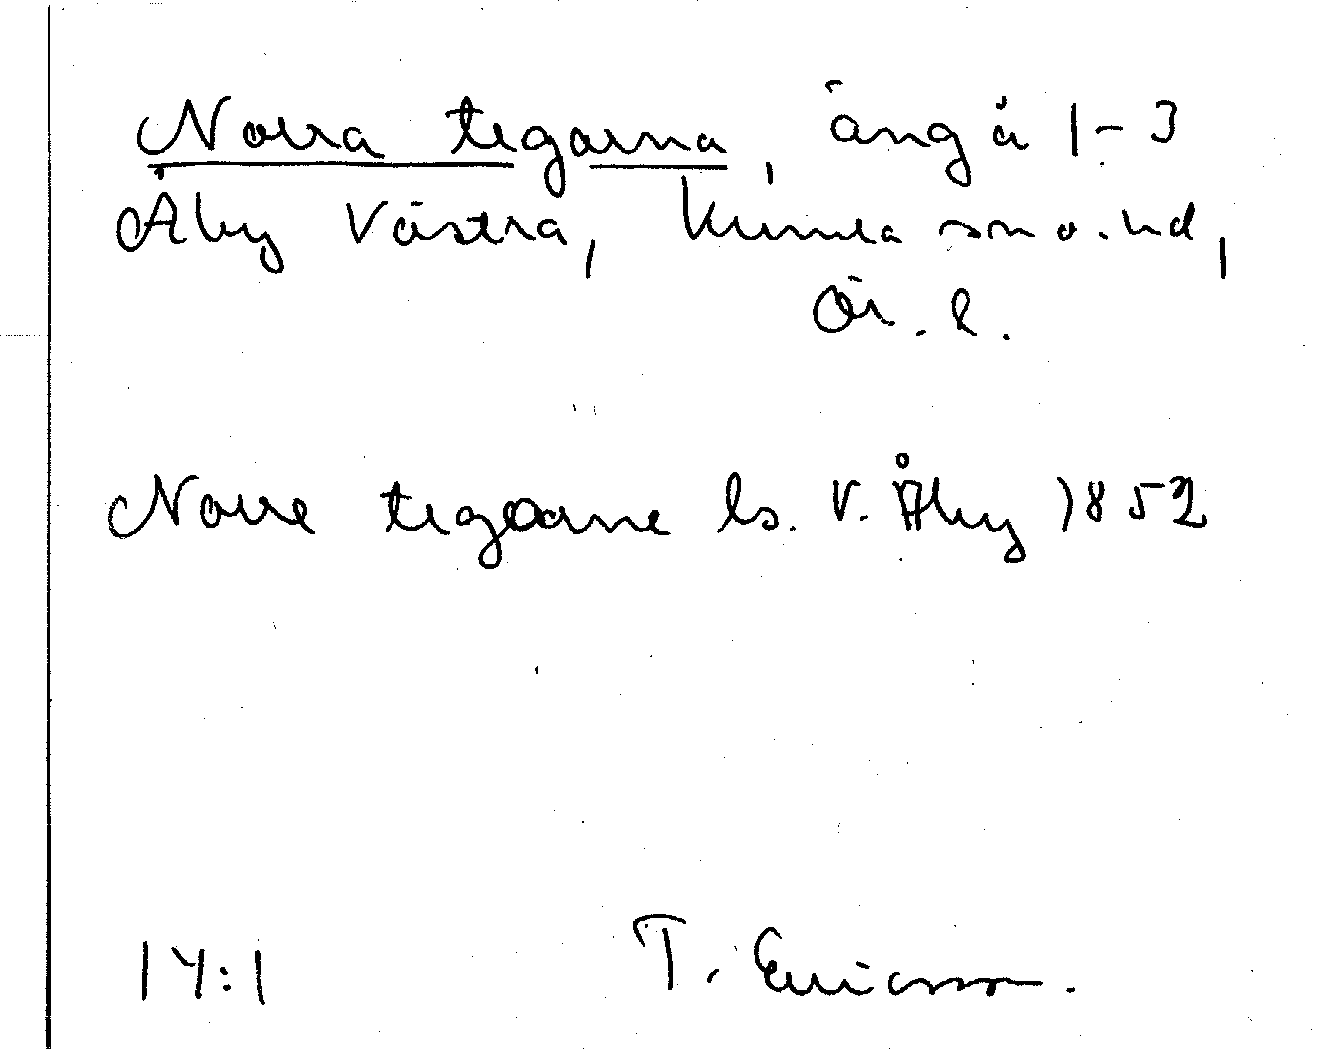 Norra tegarna, äng å 1-3
Åby Västra, Kumla sn o. hd,
Ör. l.
Norre tegarne ls. V. Åby 1852
14:1 T. Ericsson.